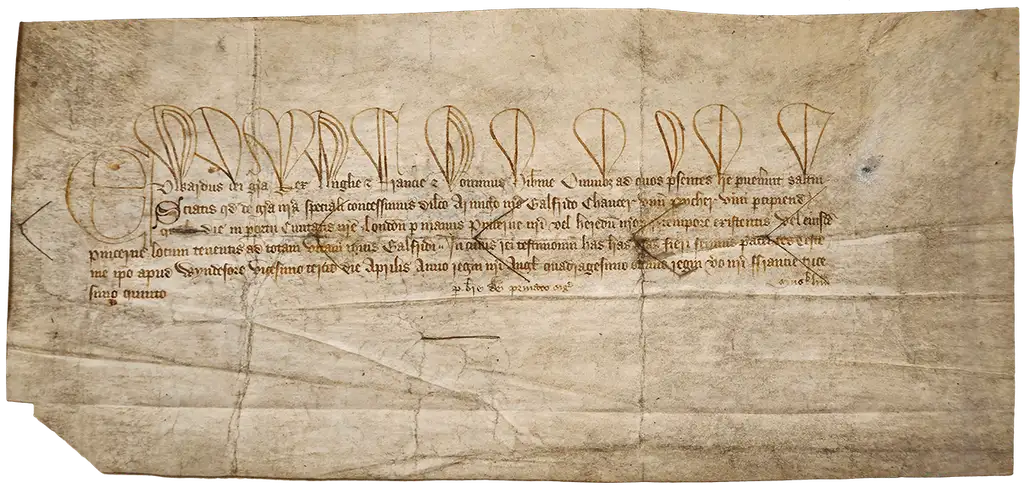 Edwardus dei gra Rex Anglie & Francie & Dominus Hibnie Omnibz ad quos psentes lre pueniint saltm
Sciatis qd de gra nra speciali concessimus dilco Armigo nro Galfrido Chaucer unu picher vini pcipiend
die in portu Civitatis nre London p manus Pincerne nri vel heredu nror tempore existentis vel eiusd
pincerne locum tenentis ad totam vitam ipius Galfridi In cuius rei testimoniu has lras fieri fecimus patentes Teste
me ipo apud Wyndesore vicesimo tercio die Aprilis Anno regni nri Angl quadragesimo octavo regni vo nri ffrancie trice
simo quinto
p bre de privato sig